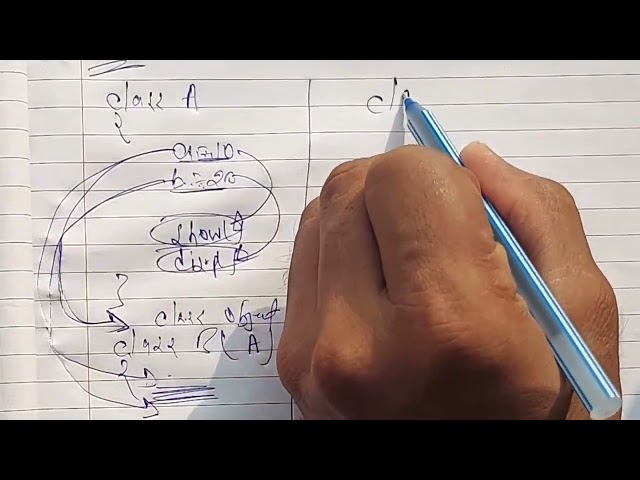 class A
{
a=10
b=20
show()
disp()
}
class object
class B(A)
{
cl